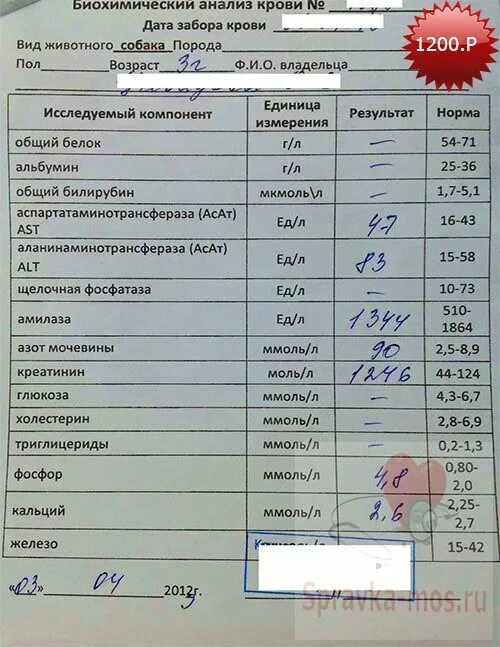 Биохимический анализ крови №
Дата забора крови
1200.Р
Вид животного собака Порода
Пол Возраст 3г Ф.И.О. владельца
Исследуемый компонент Единица измерения Результат Норма
общий белок г/л — 54-71
альбумин г/л — 25-36
общий билирубин мкмоль\л — 1,7-5,1
аспартатаминотрансфераза (АсАт) AST Ед/л 47 16-43
аланинаминотрансфераза (АсАт) ALT Ед/л 83 15-58
щелочная фосфатаза Ед/л — 10-73
амилаза Ед/л 1344 510-1864
азот мочевины ммоль/л 90 2,5-8,9
креатинин моль/л 1246 44-124
глюкоза ммоль/л — 4,3-6,7
холестерин ммоль/л — 2,8-6,9
триглицериды ммоль/л — 0,2-1,3
фосфор ммоль/л 4,8 0,80-2,0
кальций ммоль/л 2,6 2,25-2,7
железо 15-42
«03» 04 2012г.
3
Spravka-mos.ru